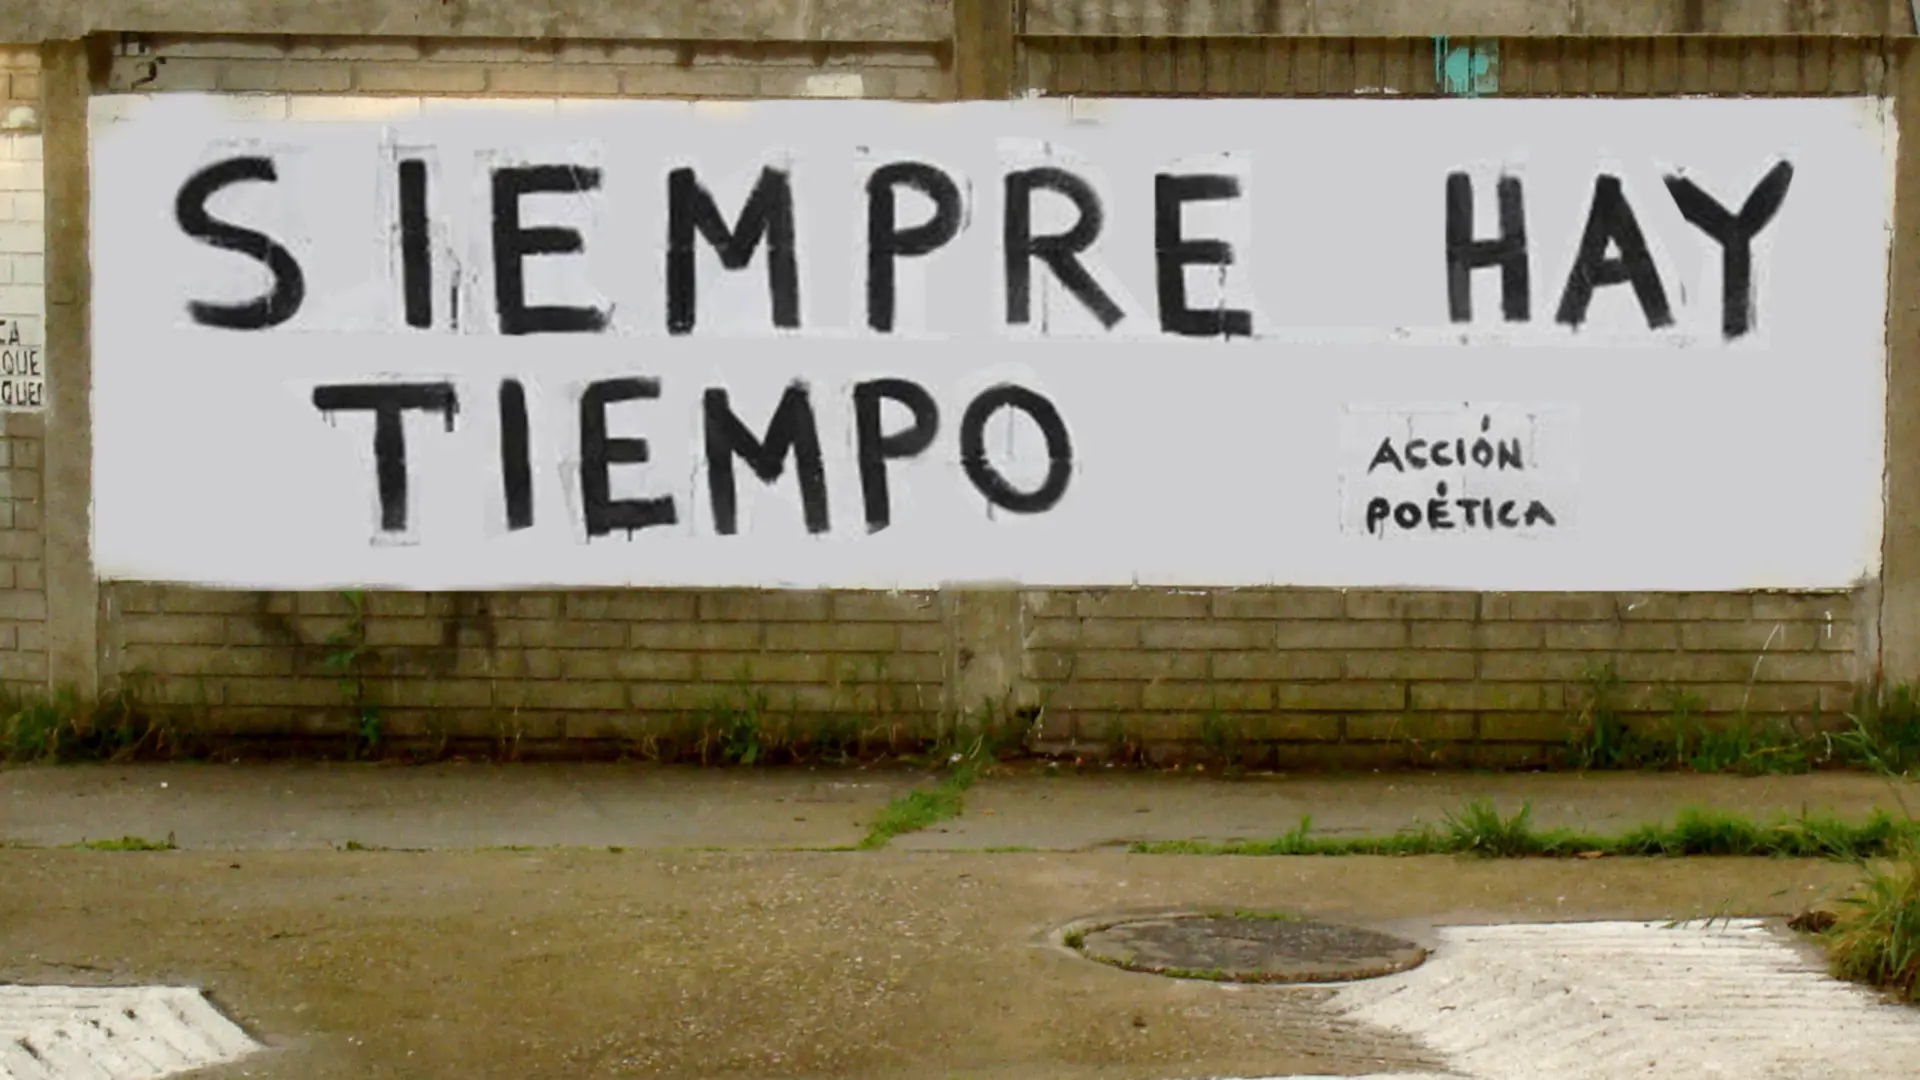 SIEMPRE HAY
TIEMPO
ACCIÓN
POÉTICA
QUE